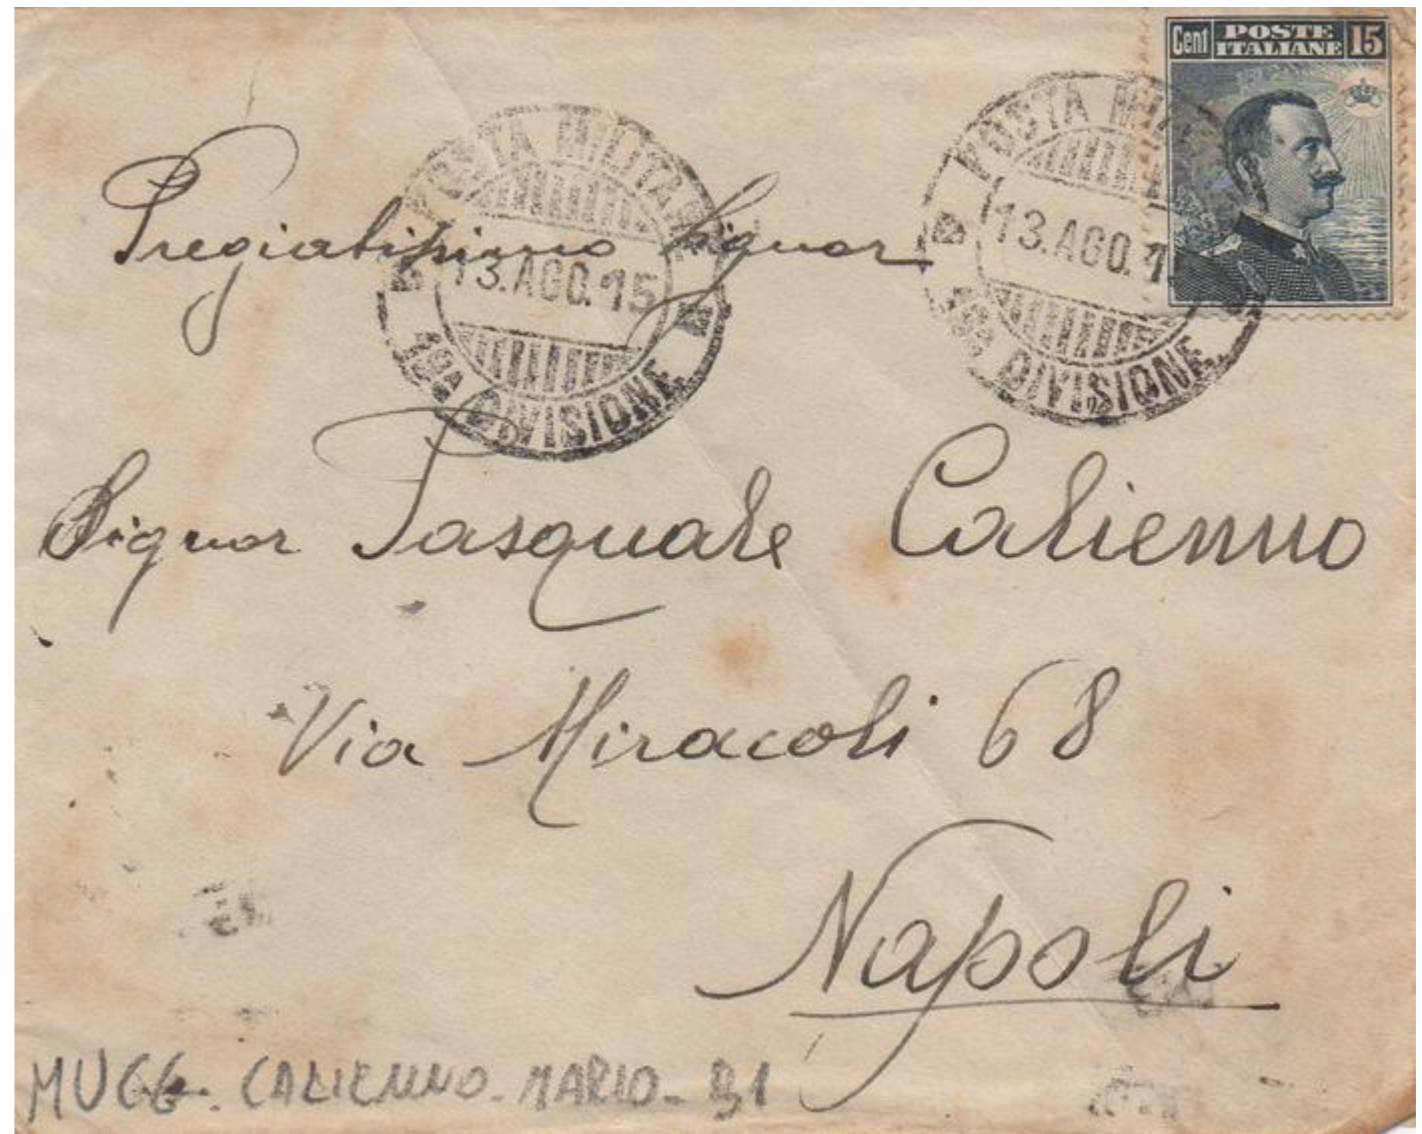 Cent POSTE ITALIANE 15
POSTA MILITARE
13.AGO.15
18A DIVISIONE
POSTA MIL
13.AGO.1
18A DIVISIONE
Pregiatissimo Signor
Signor Pasquale Calienno
Via Miracoli 68
Napoli
CALIENNO - MARIO -